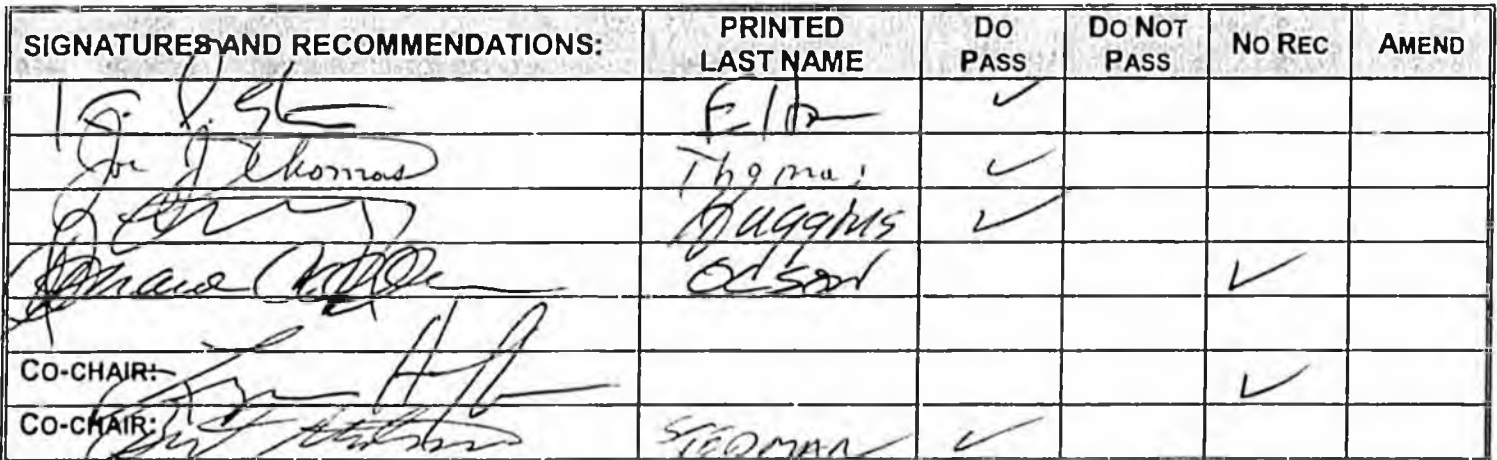 SIGNATURES AND RECOMMENDATIONS: PRINTED LAST NAME DO PASS DO NOT PASS NO REC AMEND
Elton ✓
Joe J Thomas Thomas ✓
Huggins ✓
Olson ✓
CO-CHAIR: ✓
CO-CHAIR: STEDMAN ✓